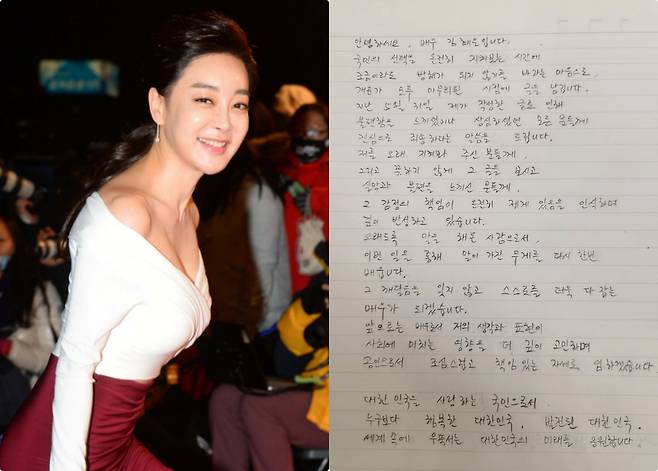 안녕하세요, 배우 김혜은입니다.
국민의 선택을 온전히 지켜보는 시간에
조금이라도 방해가 되지 않기를 바라는 마음으로,
개표가 모두 마무리된 시점에 글을 남깁니다.
지난 5월 31일 제가 작성한 글로 인해
불편함을 느끼셨거나 상심하셨을 모든 분들께
진심으로 죄송하다는 말씀을 드립니다.
저를 오래 지켜봐 주신 분들께,
그리고 뜻하지 않게 그 글을 보시고
실망과 불편을 느끼신 분들께,
그 감정의 책임이 온전히 제게 있음을 인식하며
깊이 반성하고 있습니다.
오래도록 말을 해온 사람으로서,
이번 일을 통해 말이 가진 무게를 다시 한번
배웁니다.
그 깨달음을 잊지 않고 스스로를 더욱 다잡는
배우가 되겠습니다.
앞으로는 배우로서 저의 생각과 표현이
사회에 미치는 영향을 더 깊이 고민하며
공인으로서 조심스럽고 책임 있는 자세로 임하겠습니다
대한민국을 사랑하는 국민으로서,
누구보다 행복한 대한민국, 발전된 대한민국,
세계 속에 우뚝서는 대한민국의 미래를 응원합니다.